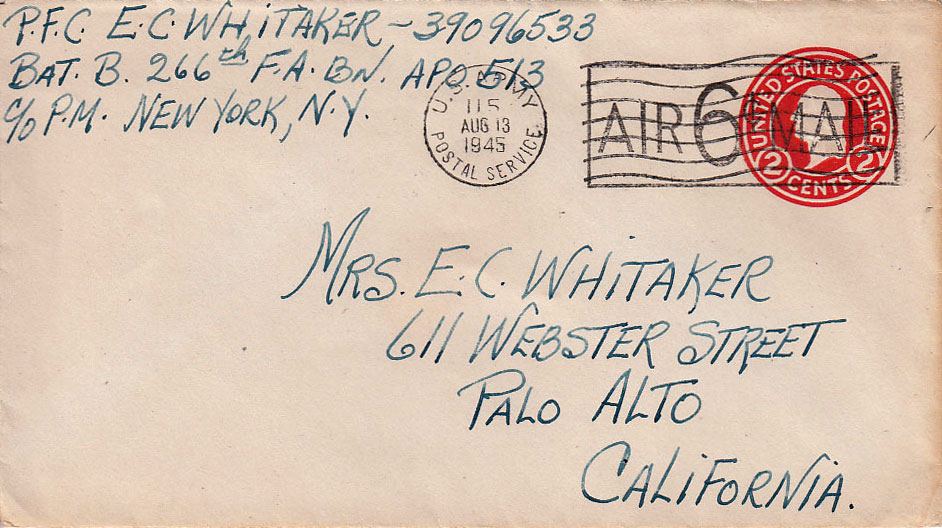 P.F.C. E.C. WHITAKER - 39096533
BAT. B. 266th F.A. BN. APO 513
c/o P.M. NEW YORK, N.Y.
U.S. ARMY
115
AUG 13
1945
POSTAL SERVICE
AIR 6¢ MAIL
UNITED STATES POSTAGE
2 CENTS 2
MRS. E.C. WHITAKER
611 WEBSTER STREET
PALO ALTO
CALIFORNIA.